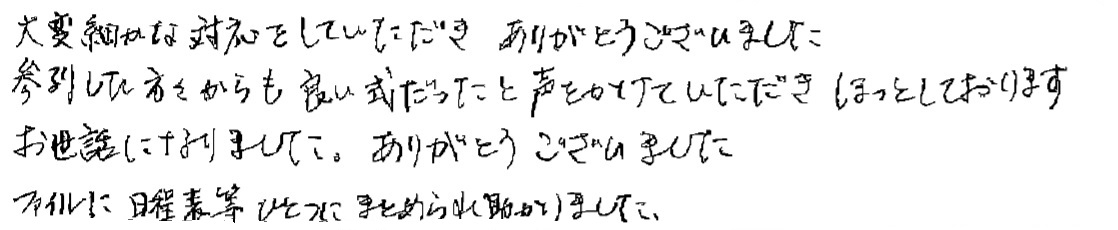 大変細かな対応をしていただき ありがとうございました
参列した方々からも良い式だったと声をかけていただき ほっとしております
お世話になりました。ありがとうございました
ファイルに日程表等ひとつにまとめられ助かりました。